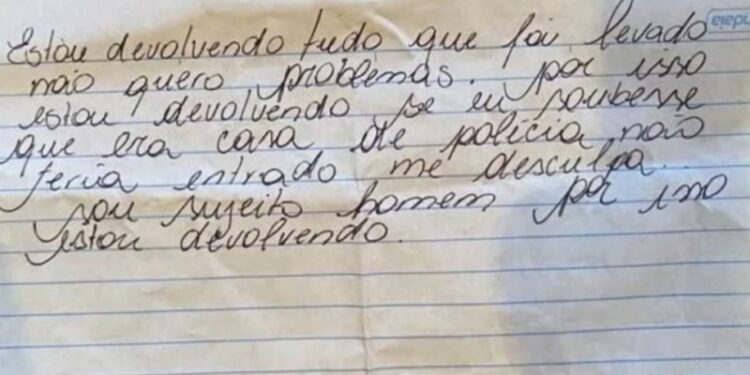 Estou devolvendo tudo que foi levado
não quero problemas. por isso
estou devolvendo se eu soubesse
que era casa de policia não
teria entrado me desculpa..
sou sujeito homem por isso
estou devolvendo.